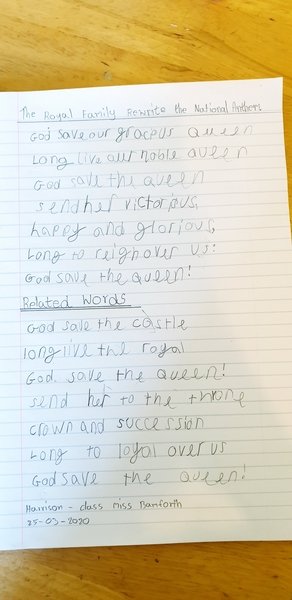 The Royal Family Rewrite the National Anthem
God save our graceus Queen
Long live our noble Queen
God save the Queen
send her victorius,
happy and glorius,
Long to reigh over us:
God save the Queen!
Related Words
God save the castle
long live the royal
God save the Queen!
send her to the throne
crown and succession
Long to loyal over us
God save the Queen!
Harrison - class miss Bamforth
25-03-2020